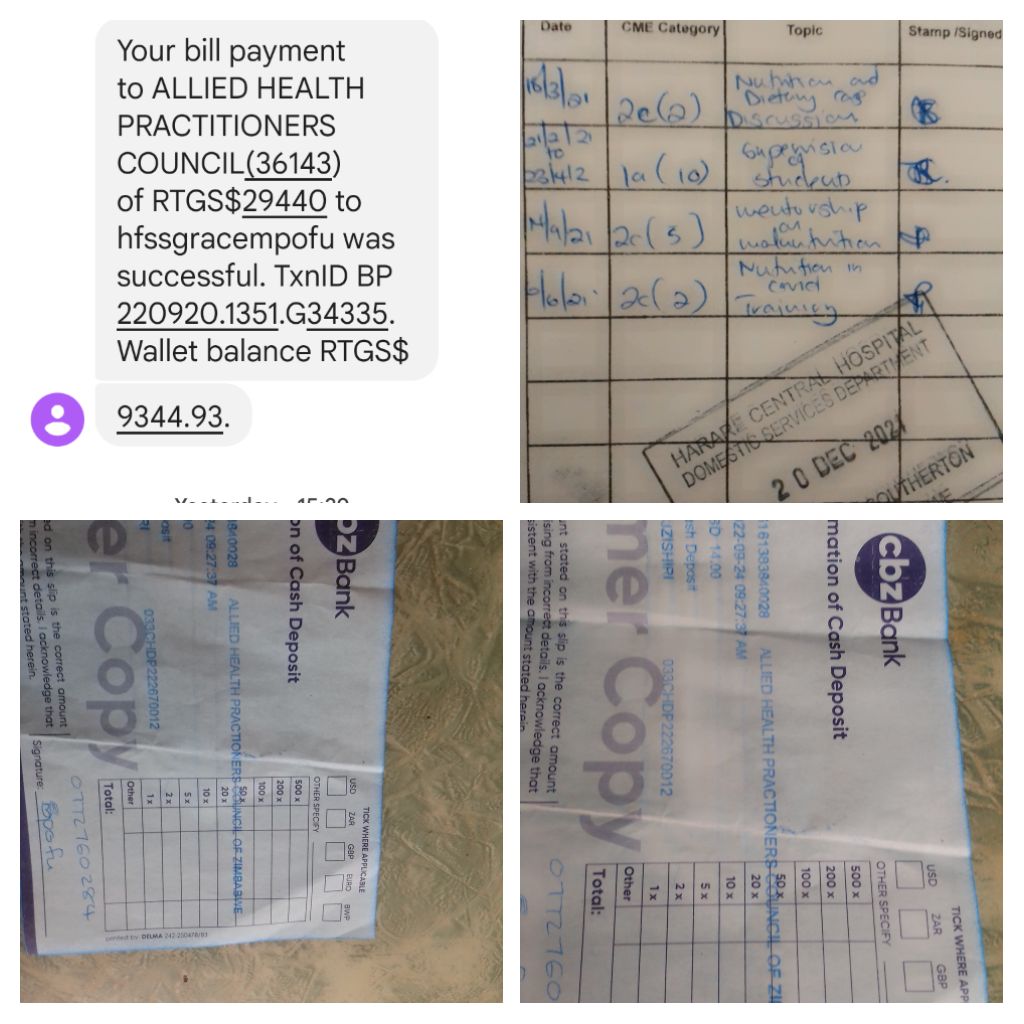 Your bill payment
to ALLIED HEALTH
PRACTITIONERS
COUNCIL(36143)
of RTGS$29440 to
hfssgracempofu was
successful. TxnID BP
220920.1351.G34335.
Wallet balance RTGS$
9344.93.
Date CME Category Topic Stamp /Signed
2c(2) Nutrition and
Dietary
Discussion
to 1a(10) Supervision
of
students
2c(5) mentorship
on
malnutrition
2c(2) Nutrition in
covid
Training
HARARE CENTRAL HOSPITAL
DOMESTIC SERVICES DEPARTMENT
20 DEC 2021
SOUTHERTON
bz Bank
on of Cash Deposit
840028 ALLIED HEALTH PRACTIONERS COUNCIL OF ZIMBABWE
09:27:37 AM
033CHDP222670012
er Copy
ed on this slip is the correct amount
m incorrect details. I acknowledge that
amount stated herein.
Signature:
0772760284
TICK WHERE APPLICABLE
USD ZAR GBP EURO BWP
OTHER SPECIFY
500 x
200 x
100 x
50 x
20 x
10 x
5 x
2 x
1 x
Other
Total:
printed by: DELMA
cbz Bank
mation of Cash Deposit
161383840028 ALLIED HEALTH PRACTIONERS COUNCIL OF ZI
22-09-24 09:27:37 AM
SD 14.00
sh Deposit
033CHDP222670012
UZISHIRI
mer Copy
nt stated on this slip is the correct amount
sing from incorrect details. I acknowledge that
sistent with the amount stated herein
0772760
TICK WHERE APP
USD ZAR GBP
OTHER SPECIFY
500 x
200 x
100 x
50 x
20 x
10 x
5 x
2 x
1 x
Other
Total: